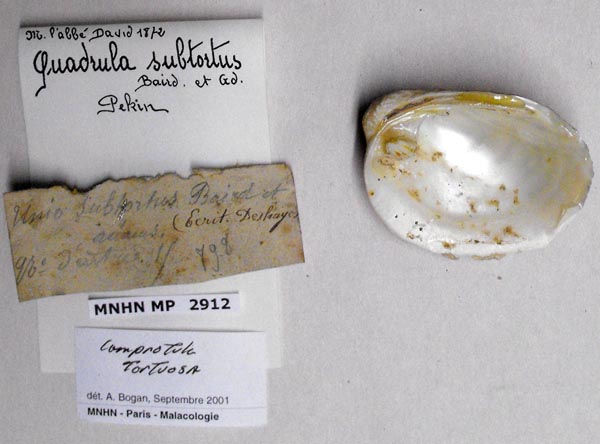 M. l'abbé David 1872
Quadrula subtortus
Baird. et Ad.
Pekin
Unio Subtortus Baird et
(Écrit. Deshayes
MNHN MP 2912
Lamprotula
tortuosa
dét. A. Bogan, Septembre 2001
MNHN - Paris - Malacologie